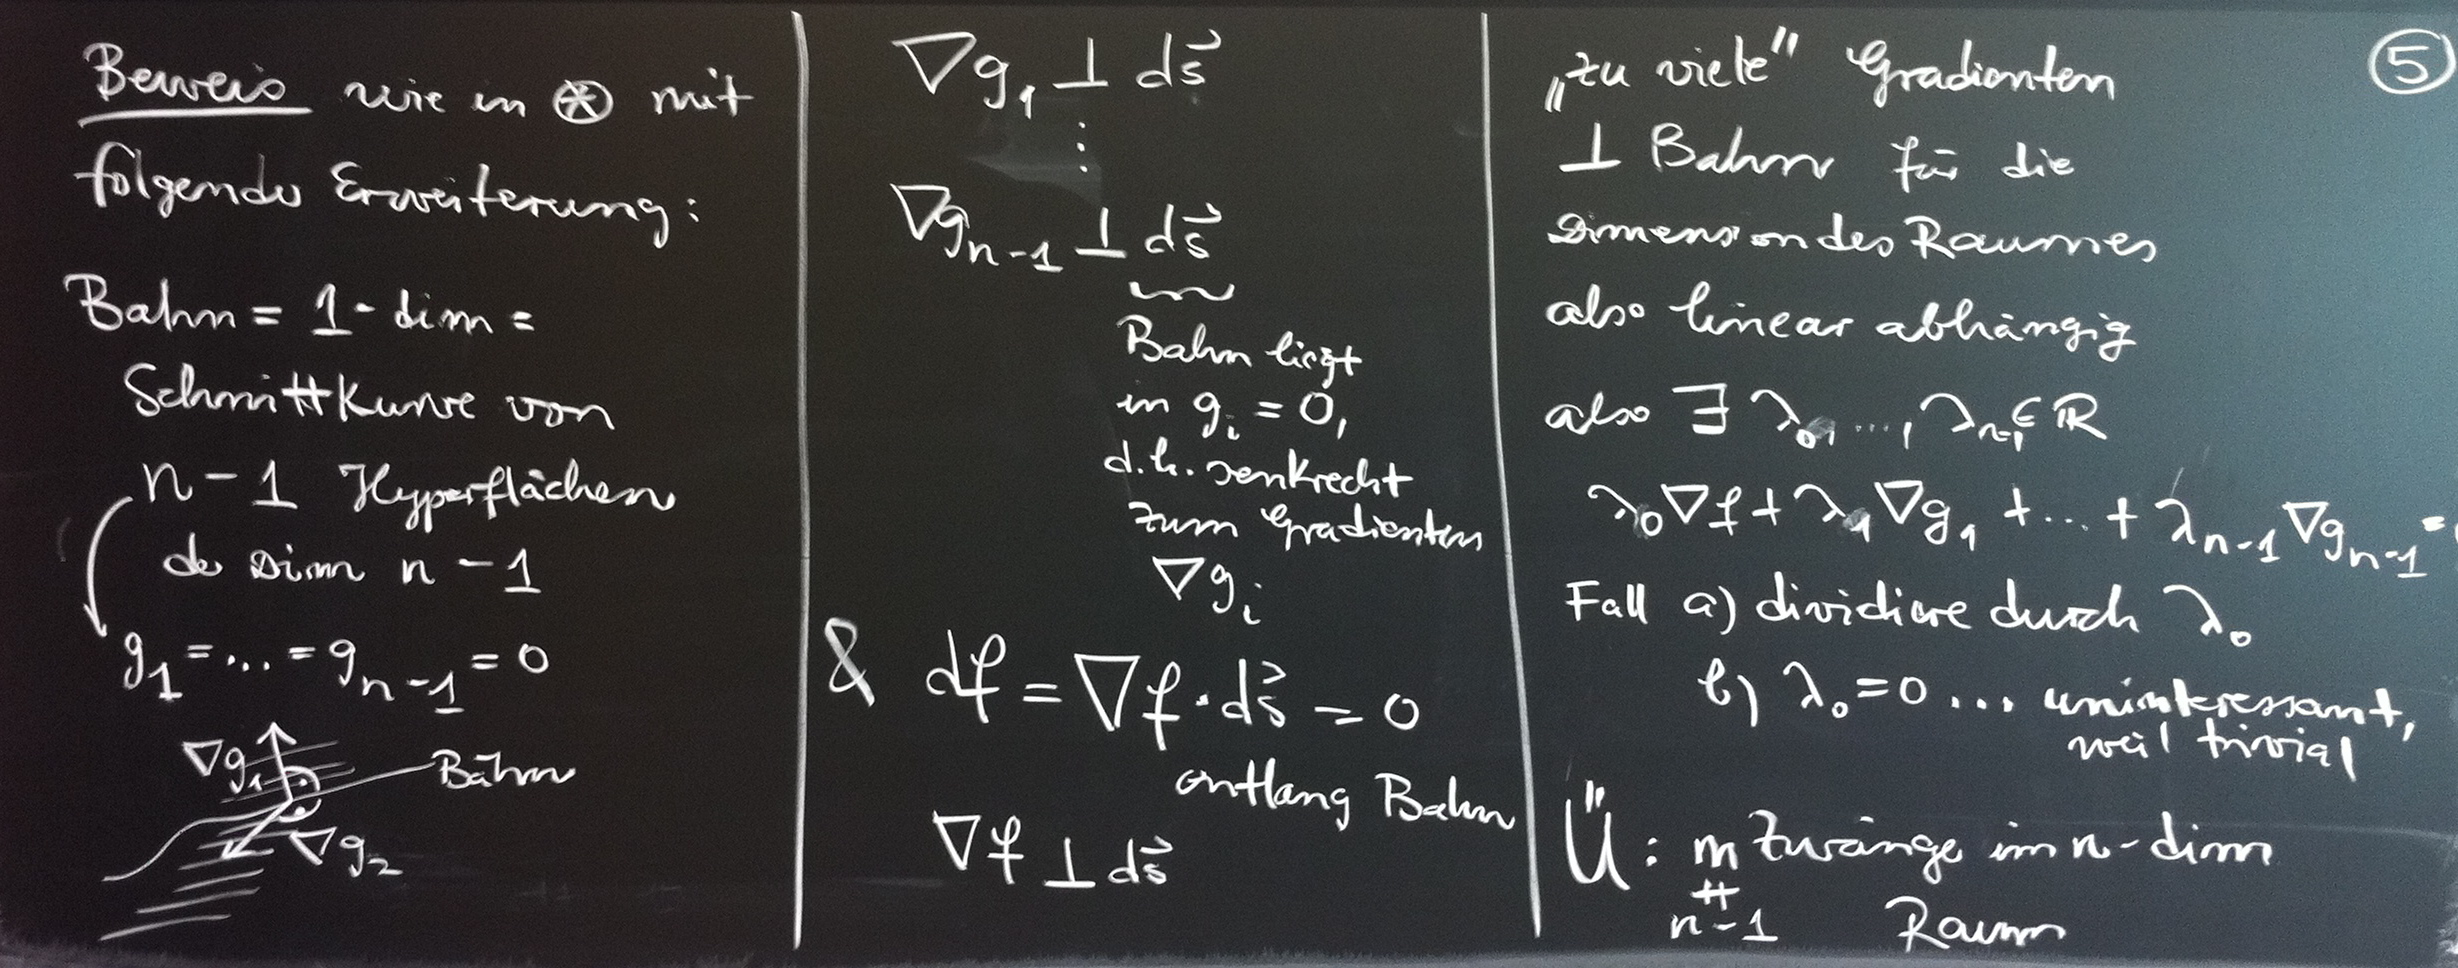 Beweis wie in ⊛ mit
folgender Erweiterung:
Bahn = 1-dim =
Schnittkurve von
n-1 Hyperflächen
der Dim n-1
g₁ = ... = gₙ₋₁ = 0
∇g₁
Bahn
∇g₂
∇g₁ ⊥ ds⃗
⋮
∇gₙ₋₁ ⊥ ds⃗
Bahn liegt
in gᵢ = 0,
d.h. senkrecht
zum Gradienten
∇gᵢ
& df = ∇f · ds⃗ = 0
entlang Bahn
∇f ⊥ ds⃗
⑤
„zu viele" Gradienten
⊥ Bahn für die
Dimension des Raumes
also linear abhängig
also ∃ λ₀, ..., λₙ₋₁ ∈ ℝ
λ₀∇f + λ₁∇g₁ + ... + λₙ₋₁∇gₙ₋₁ =
Fall a) dividiere durch λ₀
b) λ₀ = 0 ... uninteressant,
weil trivial
Ü: m Zwänge im n-dim
≠
n-1 Raum